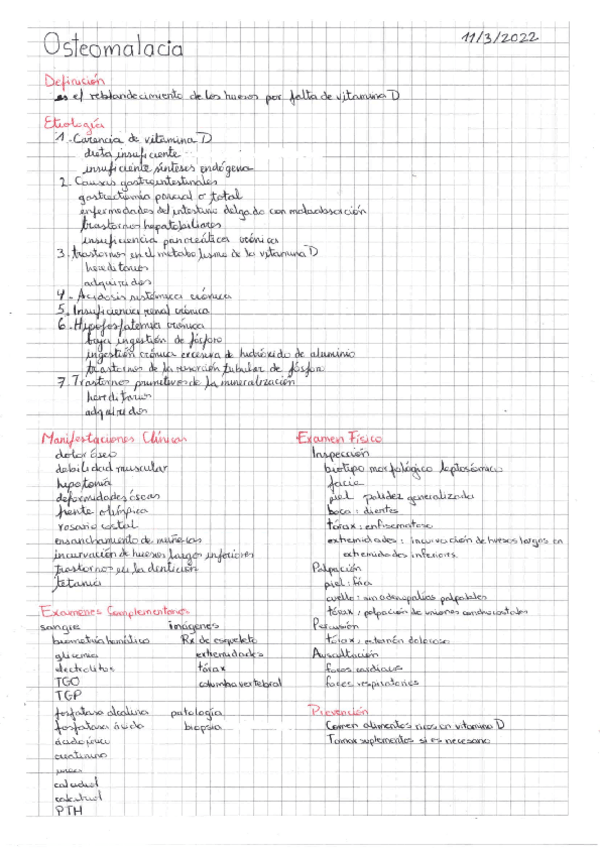 Osteomalacia
11/3/2022
Definición
es el reblandecimiento de los huesos por falta de vitamina D
Etiología
1. Carencia de vitamina D
dieta insuficiente
insuficiente síntesis endógena
2. Causas gastrointestinales
gastrectomía parcial o total
enfermedades del intestino delgado con malabsorción
trastornos hepatobiliares
insuficiencia pancreática crónica
3. trastornos en el metabolismo de la vitamina D
hereditarios
adquiridos
4. Acidosis sistémica crónica
5. Insuficiencia renal crónica
6. Hipofosfatemia crónica
baja ingestión de fósforo
ingestión crónica excesiva de hidróxido de aluminio
trastornos de la resorción tubular de fósforo
7. Trastornos primitivos de la mineralización
hereditarios
adquiridos
Manifestaciones Clínicas
dolor óseo
debilidad muscular
hipotonía
deformidades óseas
frente olímpica
rosario costal
ensanchamiento de muñecas
incurvación de huesos largos inferiores
trastornos en la dentición
tetania
Examenes Complementarios
sangre
biometría hemática
glicemia
electrolitos
TGO
TGP
fosfatasa alcalina
fosfatasa ácida
ácido úrico
creatinina
urea
calciuria
PTH
imágenes
Rx de esqueleto
extremidades
tórax
columna vertebral
patología
biopsia
Examen Físico
Inspección
biotipo morfológico leptosómico
facie
piel palidez generalizada
boca: dientes
tórax: enfisematoso
extremidades: incurvación de huesos largos en
extremidades inferiores.
Palpación
piel: fría
cuello: sin adenopatías palpables
tórax, palpación de uniones condrocostales
Percusión
tórax, esternón doloroso
Auscultación
focos cardiacos
focos respiratorios
Prevención
Comer alimentos ricos en vitamina D
Tomar suplementos si es necesario